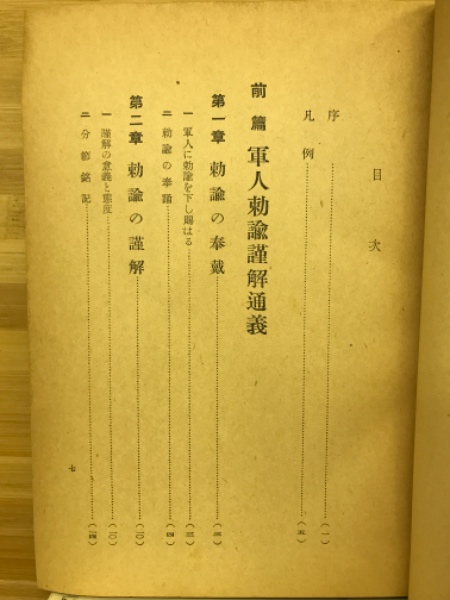 目次
序……（一）
凡例……（五）
前篇 軍人勅諭謹解通義
第一章 勅諭の奉戴……（三）
一 軍人に勅諭を下し賜はる……（三）
二 勅諭の奉誦……（四）
第二章 勅諭の謹解……（一〇）
一 謹解の意義と態度……（一〇）
二 分節銘記……（一四）
七